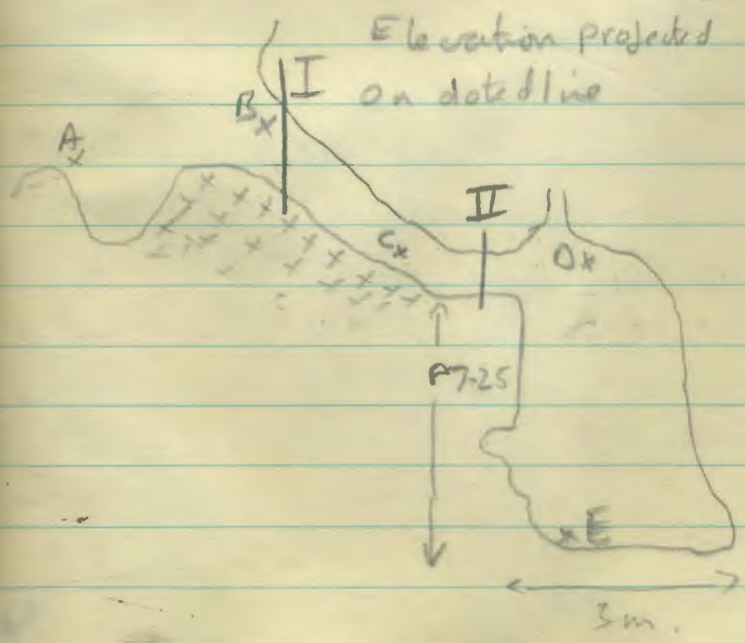 Elevation projected
on doted line
I
B x
A x
II
C x
D x
P7.25
x E
3 m.